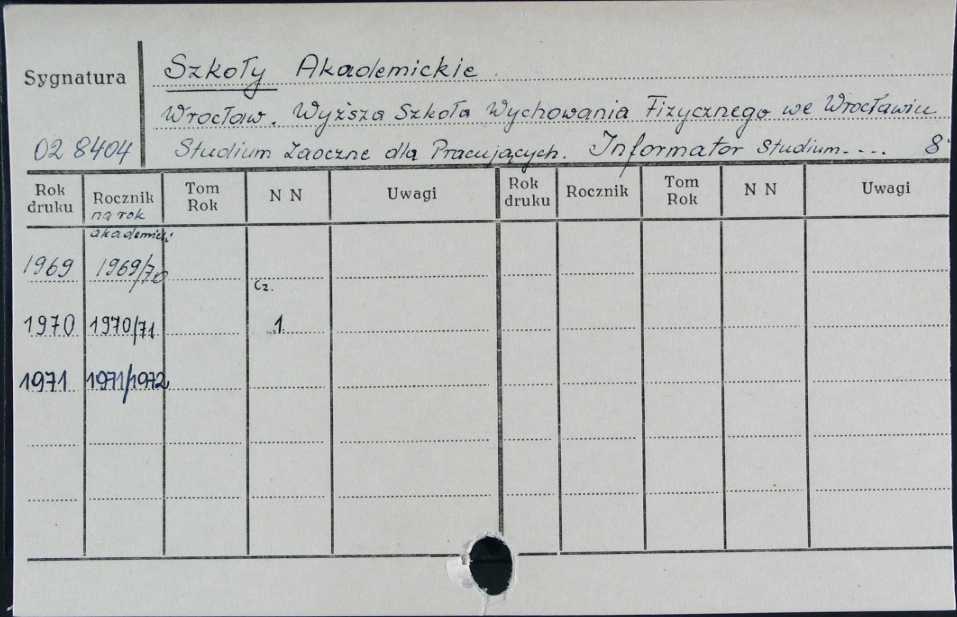 Sygnatura
Szkoły Akademickie
Wrocław. Wyższa Szkoła Wychowania Fizycznego we Wrocławiu
02 8404 Studium Zaoczne dla Pracujących. Informator Studium.... 8°
Rok druku Rocznik na rok akademicki Tom Rok N N Uwagi Rok druku Rocznik Tom Rok N N Uwagi
1969 1969/70
1970 1970/71 cz. 1
1971 1971/1972